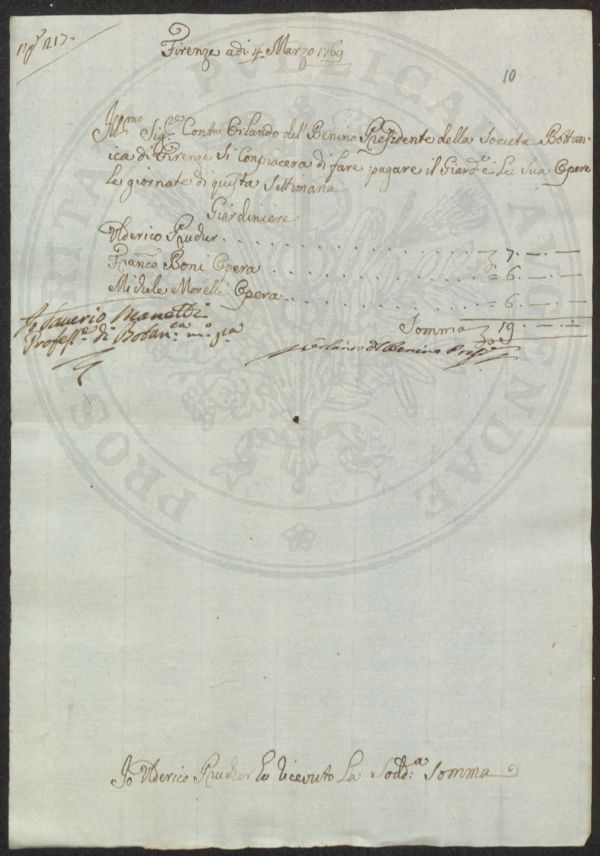 1217
Firenze adi 4 Marzo 1769
10
Ill:mo Sig:re Conte Orlando del Benino Presidente della Società Bottan=
ica di Firenze Si Conpiacera di fare pagare il Giard:e e Le Sua Opere
le giornate di questa Settimana
Giardiniere
Ulderico Rudier . . . . . . . . . . 7 . — . —
Franco Boni Opera . . . . . . . . = 6 . — . —
Michele Morelli Opera . . . . . . . 6 . — . —
Somma 19 . — . —
Saverio Manetti
Profess:re di Botan:ca m:o p:ia
Orlando del Benino Pres:e
Io Ulderico Rudier ho ricevuto La Sodd:a Somma
PROSPERITATI PVBLICAE AVGENDAE